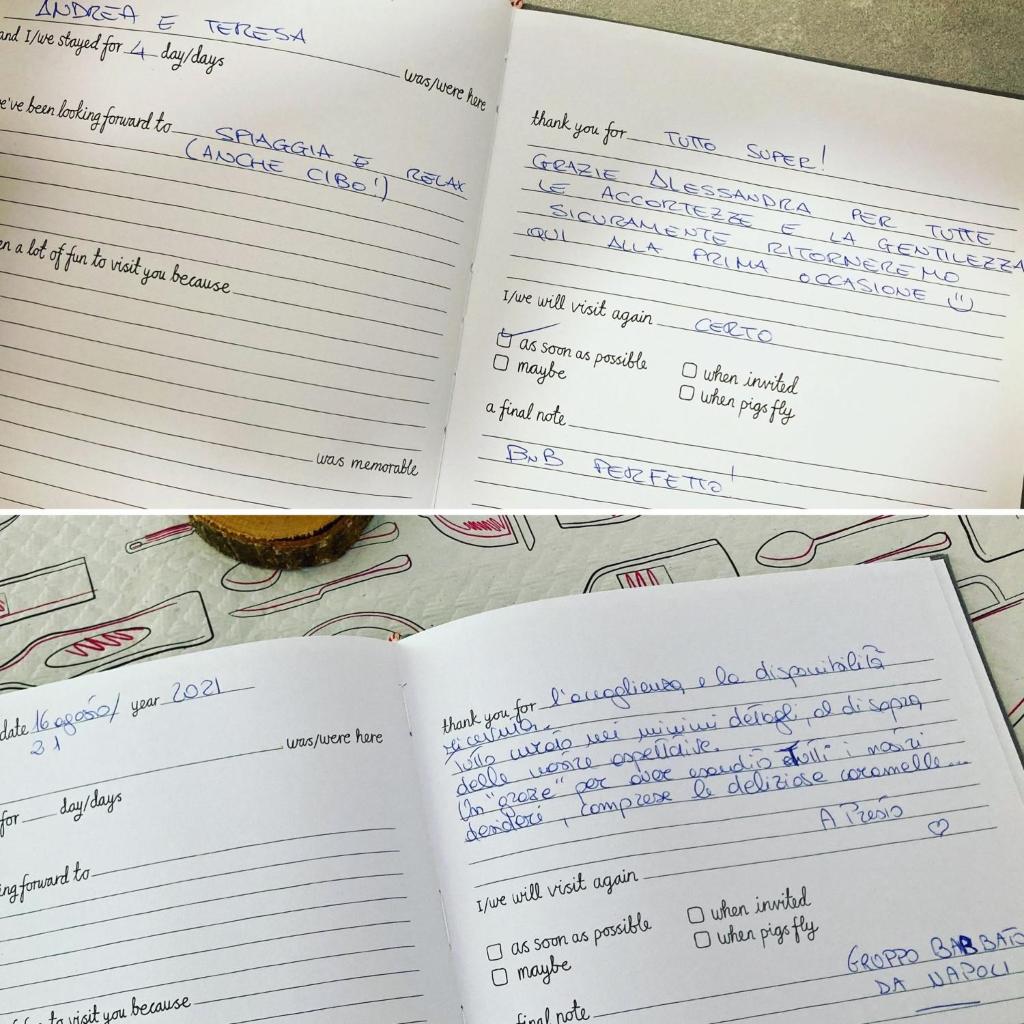 ANDREA E TERESA
was/were here
and I/we stayed for 4 day/days
e've been looking forward to SPIAGGIA E RELAX
(ANCHE CIBO!)
n a lot of fun to visit you because
was memorable
thank you for TUTTO SUPER!
GRAZIE ALESSANDRA PER TUTTE
LE ACCORTEZZE E LA GENTILEZZA
SICURAMENTE RITORNEREMO
QUI ALLA PRIMA OCCASIONE
I/we will visit again CERTO
as soon as possible
when invited
maybe
when pigs fly
a final note
BNB PERFETTO!
date 16 agosto/ year 2021
21
was/were here
for day/days
ing forward to
to visit you because
thank you for l'accoglienza e la disponibilità
ricevuta.
Tutto curato nei minimi dettagli, al disopra
delle nostre aspettative.
Un "grazie" per aver esaudito tutti i nostri
desideri, comprese le deliziose caramelle...
A Presto
I/we will visit again
as soon as possible
when invited
maybe
when pigs fly
final note
GRUPPO BABBATO
DA NAPOLI